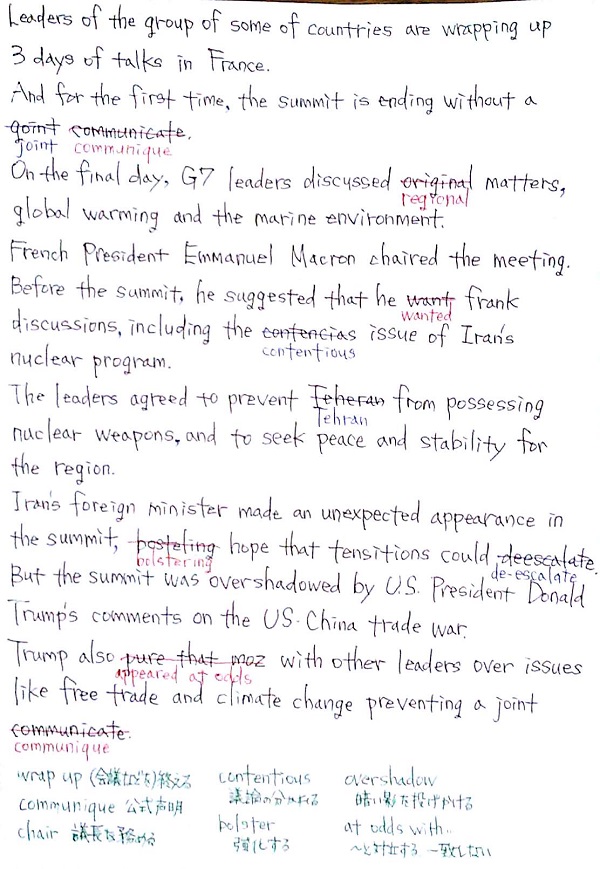 Leaders of the group of some of countries are wrapping up
3 days of talks in France.
And for the first time, the summit is ending without a
goint communicate.
joint communique
On the final day, G7 leaders discussed original matters,
regional
global warming and the marine environment.
French President Emmanuel Macron chaired the meeting.
Before the summit, he suggested that he want frank
wanted
discussions, including the contencias issue of Iran's
contentious
nuclear program.
The leaders agreed to prevent Teheran from possessing
Tehran
nuclear weapons, and to seek peace and stability for
the region.
Iran's foreign minister made an unexpected appearance in
the summit, bosteling hope that tensitions could deescalate.
bolstering de-escalate
But the summit was overshadowed by U.S. President Donald
Trump's comments on the US-China trade war.
Trump also pure that moz with other leaders over issues
appeared at odds
like free trade and climate change preventing a joint
communicate.
communique
wrap up (会議などを)終える contentious overshadow
communique 公式声明 議論の分かれる 暗い影を投げかける
chair 議長を務める bolster at odds with..
強化する ~と対立する 一致しない